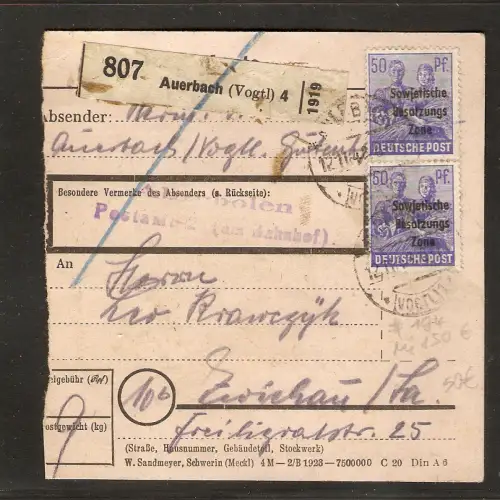 807
Auerbach (Vogtl) 4
1919
50 Pf.
Sowjetische
Besatzungs
Zone
DEUTSCHE POST
50 Pf.
Sowjetische
Besatzungs
Zone
DEUTSCHE POST
Absender:
Auerbach/Vogtl.
Besondere Vermerke des Absenders (s. Rückseite):
Postamt (am Bahnhof)
An
Herrn
Leo Krawczyk
10b
Zwickau/Sa.
Freiligratstr. 25
(Straße, Hausnummer, Gebäudeteil, Stockwerk)
W. Sandmeyer, Schwerin (Meckl) 4 M—2/B 1923—7500000 C 20 Din A 6
elgebühr
ostgewicht (kg)
9
VOGTL
150 €
50€